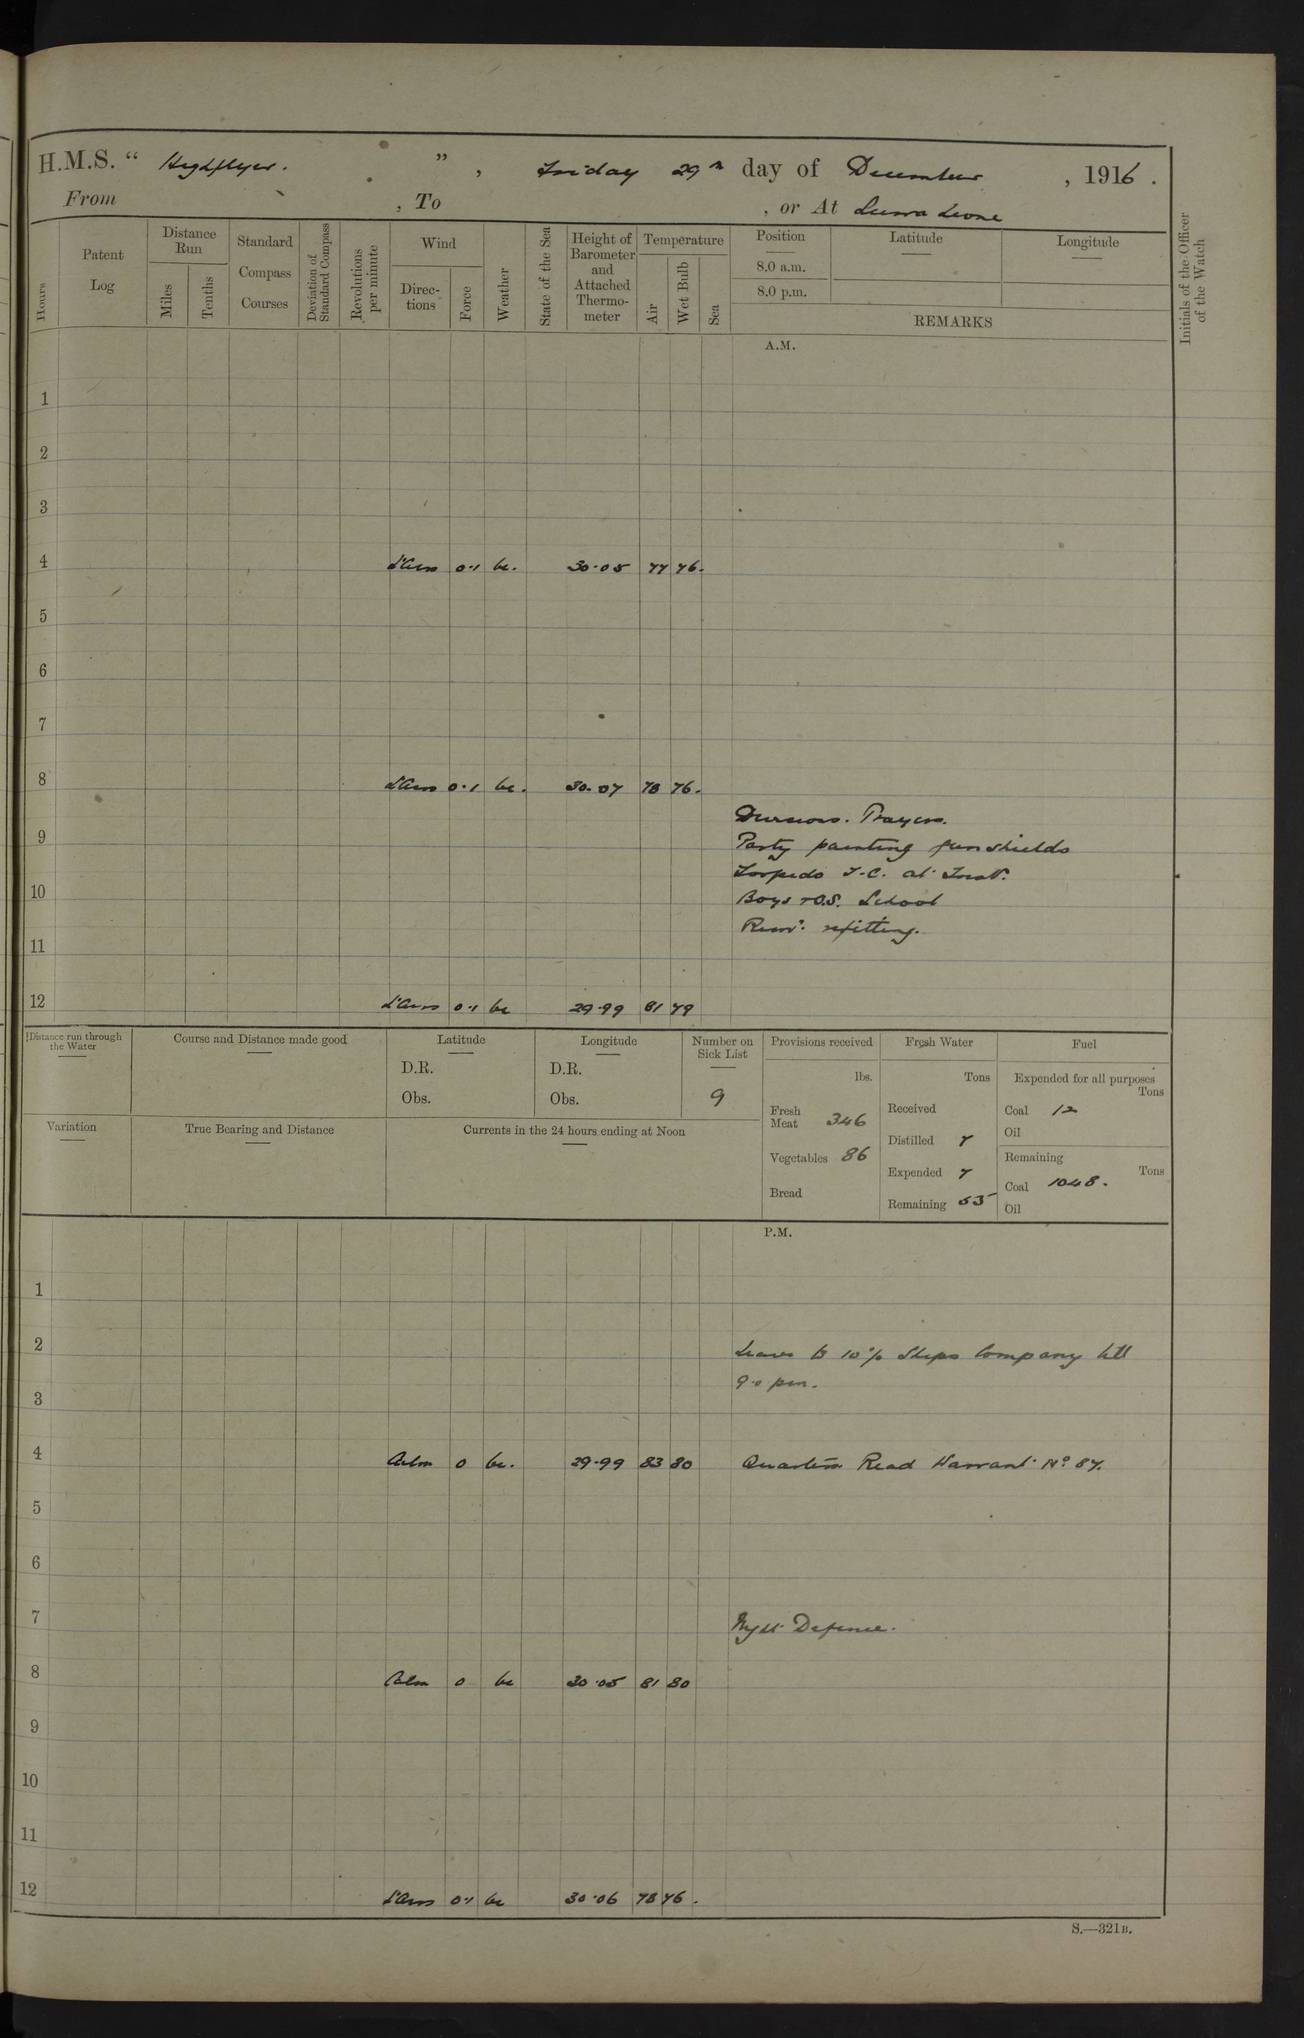 H.M.S. " Highflyer. " , Friday 29th day of December , 1916 .
From , To , or At Sierra Leone
Hours
Patent Log
Distance Run
Miles
Tenths
Standard Compass Courses
Deviation of Standard Compass
Revolutions per minute
Wind
Direc- tions
Force
Weather
State of the Sea
Height of Barometer and Attached Thermo- meter
Temperature
Air
Wet Bulb
Sea
Position
8.0 a.m.
8.0 p.m.
Latitude
Longitude
REMARKS
Initials of the Officer of the Watch
A.M.
1
2
3
4 L'Airs 0.1 bc. 30.05 77 76.
5
6
7
8 L'Airs 0.1 bc. 30.07 78 76.
Divisions. Prayers.
9 Party painting gunshields
Torpedo T.C. at Inst.
10 Boys & O.S. School
Remr. refitting.
11
12 L'Airs 0.1 bc 29.99 81 79
Distance run through the Water
Course and Distance made good
Latitude
D.R.
Obs.
Longitude
D.R.
Obs.
Number on Sick List
9
Provisions received
lbs.
Fresh Meat 346
Vegetables 86
Bread
Fresh Water
Tons
Received
Distilled 7
Expended 7
Remaining 55
Fuel
Expended for all purposes
Tons
Coal 12
Oil
Remaining
Tons
Coal 1048.
Oil
Variation
True Bearing and Distance
Currents in the 24 hours ending at Noon
P.M.
1
2 Leave to 10% Ships Company till
9.0 pm.
3
4 Calm 0 bc. 29.99 83 80 Quarters Read Warrant No. 87.
5
6
7 Night Defence.
8 Calm 0 bc 30.05 81 80
9
10
11
12 L'Airs 0.1 bc 30.06 78 76 .
S.—321B.